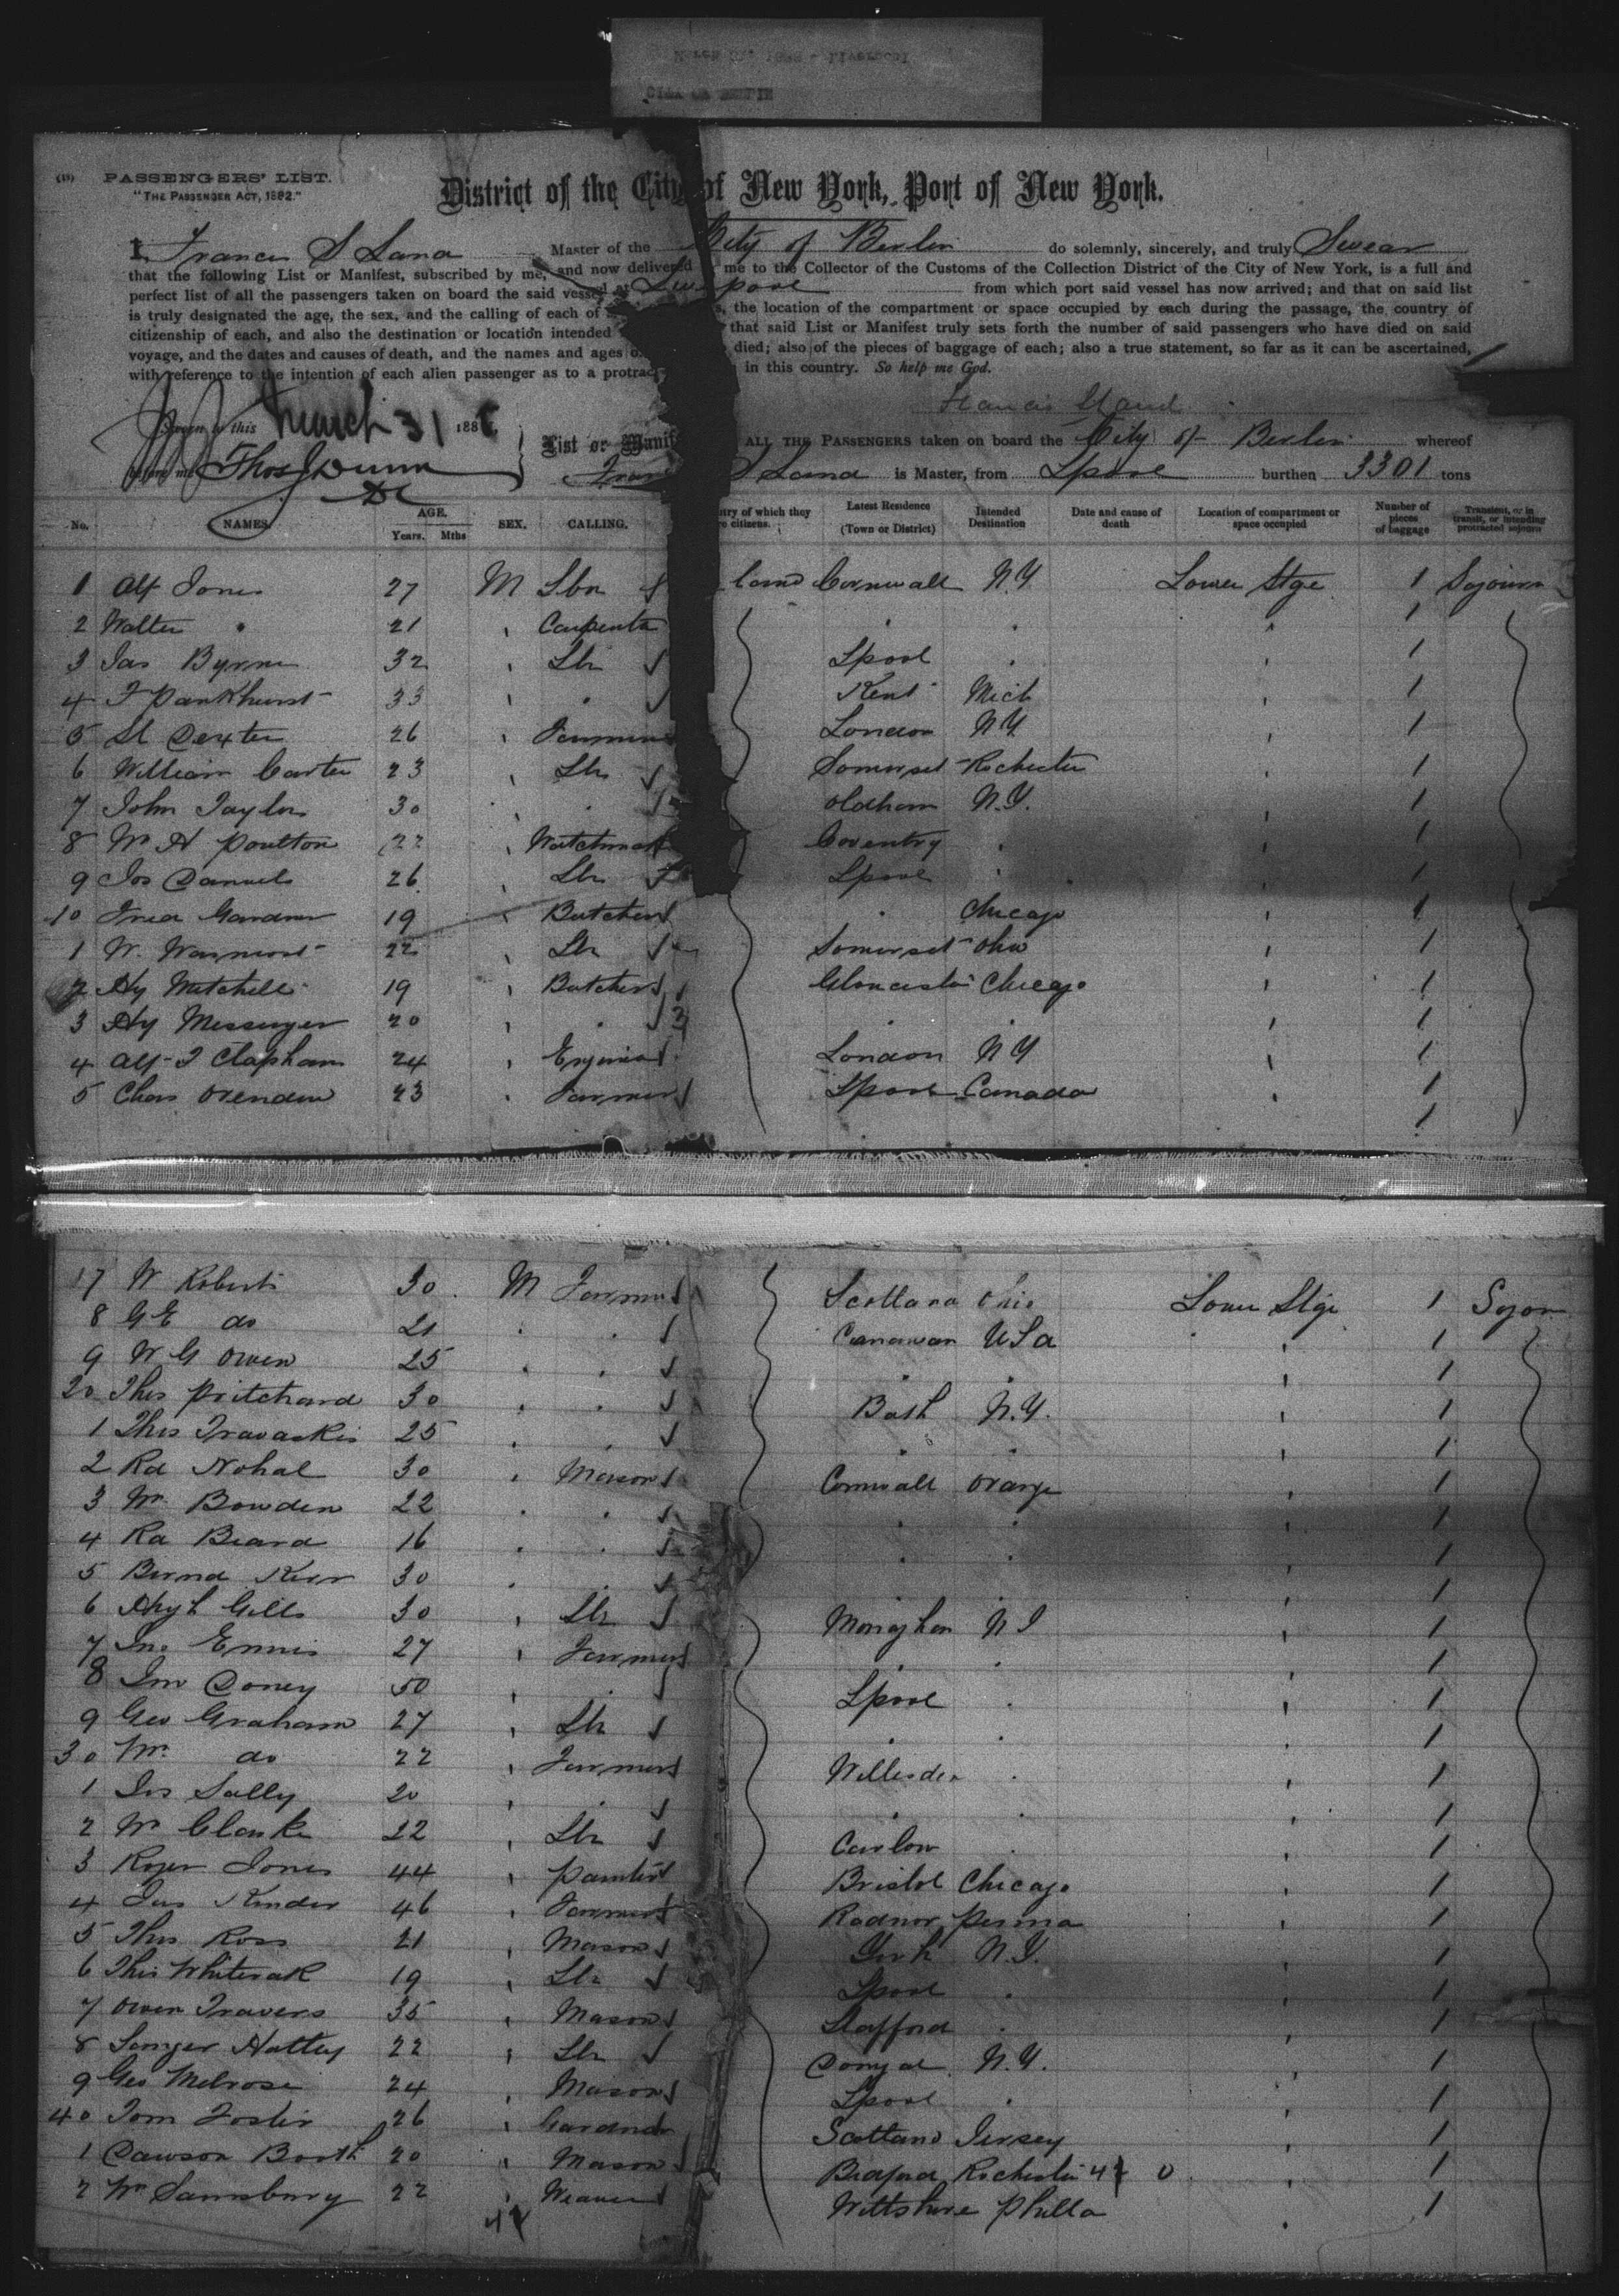 (19) PASSENGERS' LIST.
"THE PASSENGER ACT, 1882."
District of the City of New York, Port of New York.
I, Francis S Land Master of the City of Berlin do solemnly, sincerely, and truly Swear
that the following List or Manifest, subscribed by me, and now delivered me to the Collector of the Customs of the Collection District of the City of New York, is a full and
perfect list of all the passengers taken on board the said vessel at Liverpool from which port said vessel has now arrived; and that on said list
is truly designated the age, the sex, and the calling of each of the location of the compartment or space occupied by each during the passage, the country of
citizenship of each, and also the destination or location intended that said List or Manifest truly sets forth the number of said passengers who have died on said
voyage, and the dates and causes of death, and the names and ages died; also of the pieces of baggage of each; also a true statement, so far as it can be ascertained,
with reference to the intention of each alien passenger as to a in this country. So help me God.
Francis S Land
Sworn to this March 31 188
before me Thos J Dunn
DC
List or ALL THE PASSENGERS taken on board the City of Berlin whereof
S Land is Master, from Lpool burthen 3301 tons
No. NAMES. AGE. Years. Mths SEX. CALLING. of which they citizens. Latest Residence (Town or District) Intended Destination Date and cause of death Location of compartment or space occupied Number of pieces of baggage Transient, or in transit, or intending protracted sojourn
1 Alf Jones 27 M Lbr land Cornwall N.Y Lower Stge 1 Sojourn
2 Walter " 21 " Carpenter " " " 1
3 Jas Byrne 32 " Lbr Lpool " " 1
4 J Pankhurst 33 " " Kent Mich " 1
5 Dexter 26 " London N.Y. " 1
6 William Carter 23 " Lbr Somerset Rochester " 1
7 John Taylor 30 " " Oldham N.Y. " 1
8 Wm H Poulton 22 " Coventry " " 1
9 Jos Daniels 26 " Lbr Lpool " " 1
10 Fred Gardner 19 " Butcher " Chicago " 1
1 W. 22 " Lbr Somerset Ohio " 1
2 Hy Mitchell 19 " Butcher Gloucester Chicago " 1
3 Hy Messenger 20 " " " " " 1
4 Alf J Clapham 24 " London N.Y " 1
5 Chas Oxenden 23 " Farmer Lpool Canada " 1
1
17 W Roberts 30 M Farmer Scotland Ohio Lower Stge 1 Sojourn
8 G E do 21 " " USA " 1
9 W G Owen 25 " " " " " 1
20 Thos Pritchard 30 " " Bath N.Y. " 1
1 Thos Travaskis 25 " " " " " 1
2 Rd Nohal 30 " Mason Cornwall Orange " 1
3 Wm Bowden 22 " " " " " 1
4 Rd Beard 16 " " " " " 1
5 Bernd Kerr 30 " " " 1
6 Hugh Gills 30 " Lbr Monaghan N.Y " 1
7 Jno Ennis 27 " Farmer " " 1
8 Jno Doney 50 " " Lpool " " 1
9 Geo Graham 27 " Lbr " " " 1
30 Wm do 22 " Farmer Willesden " " 1
1 Jos Sally 20 " " " " " 1
2 Wm Clarke 22 " Lbr Carlow " " 1
3 Roger Jones 44 " Painter Bristol Chicago " 1
4 Jas Kinder 46 " Farmer Radnor Penna " 1
5 Thos Ross 21 " Mason York N.Y. " 1
6 Thos Whiteoak 19 " Lbr Lpool " " 1
7 Owen Travers 35 " Mason Stafford " " 1
8 22 " Lbr Donegal N.Y. " 1
9 Geo Melrose 24 " Mason Lpool " " 1
40 Tom Foster 26 " Gardner Scotland Jersey " 1
1 Dawson Booth 20 " Mason Bedford Rochester " 1
2 Wm Sansbury 22 " Weaver Wiltshire Philla " 1